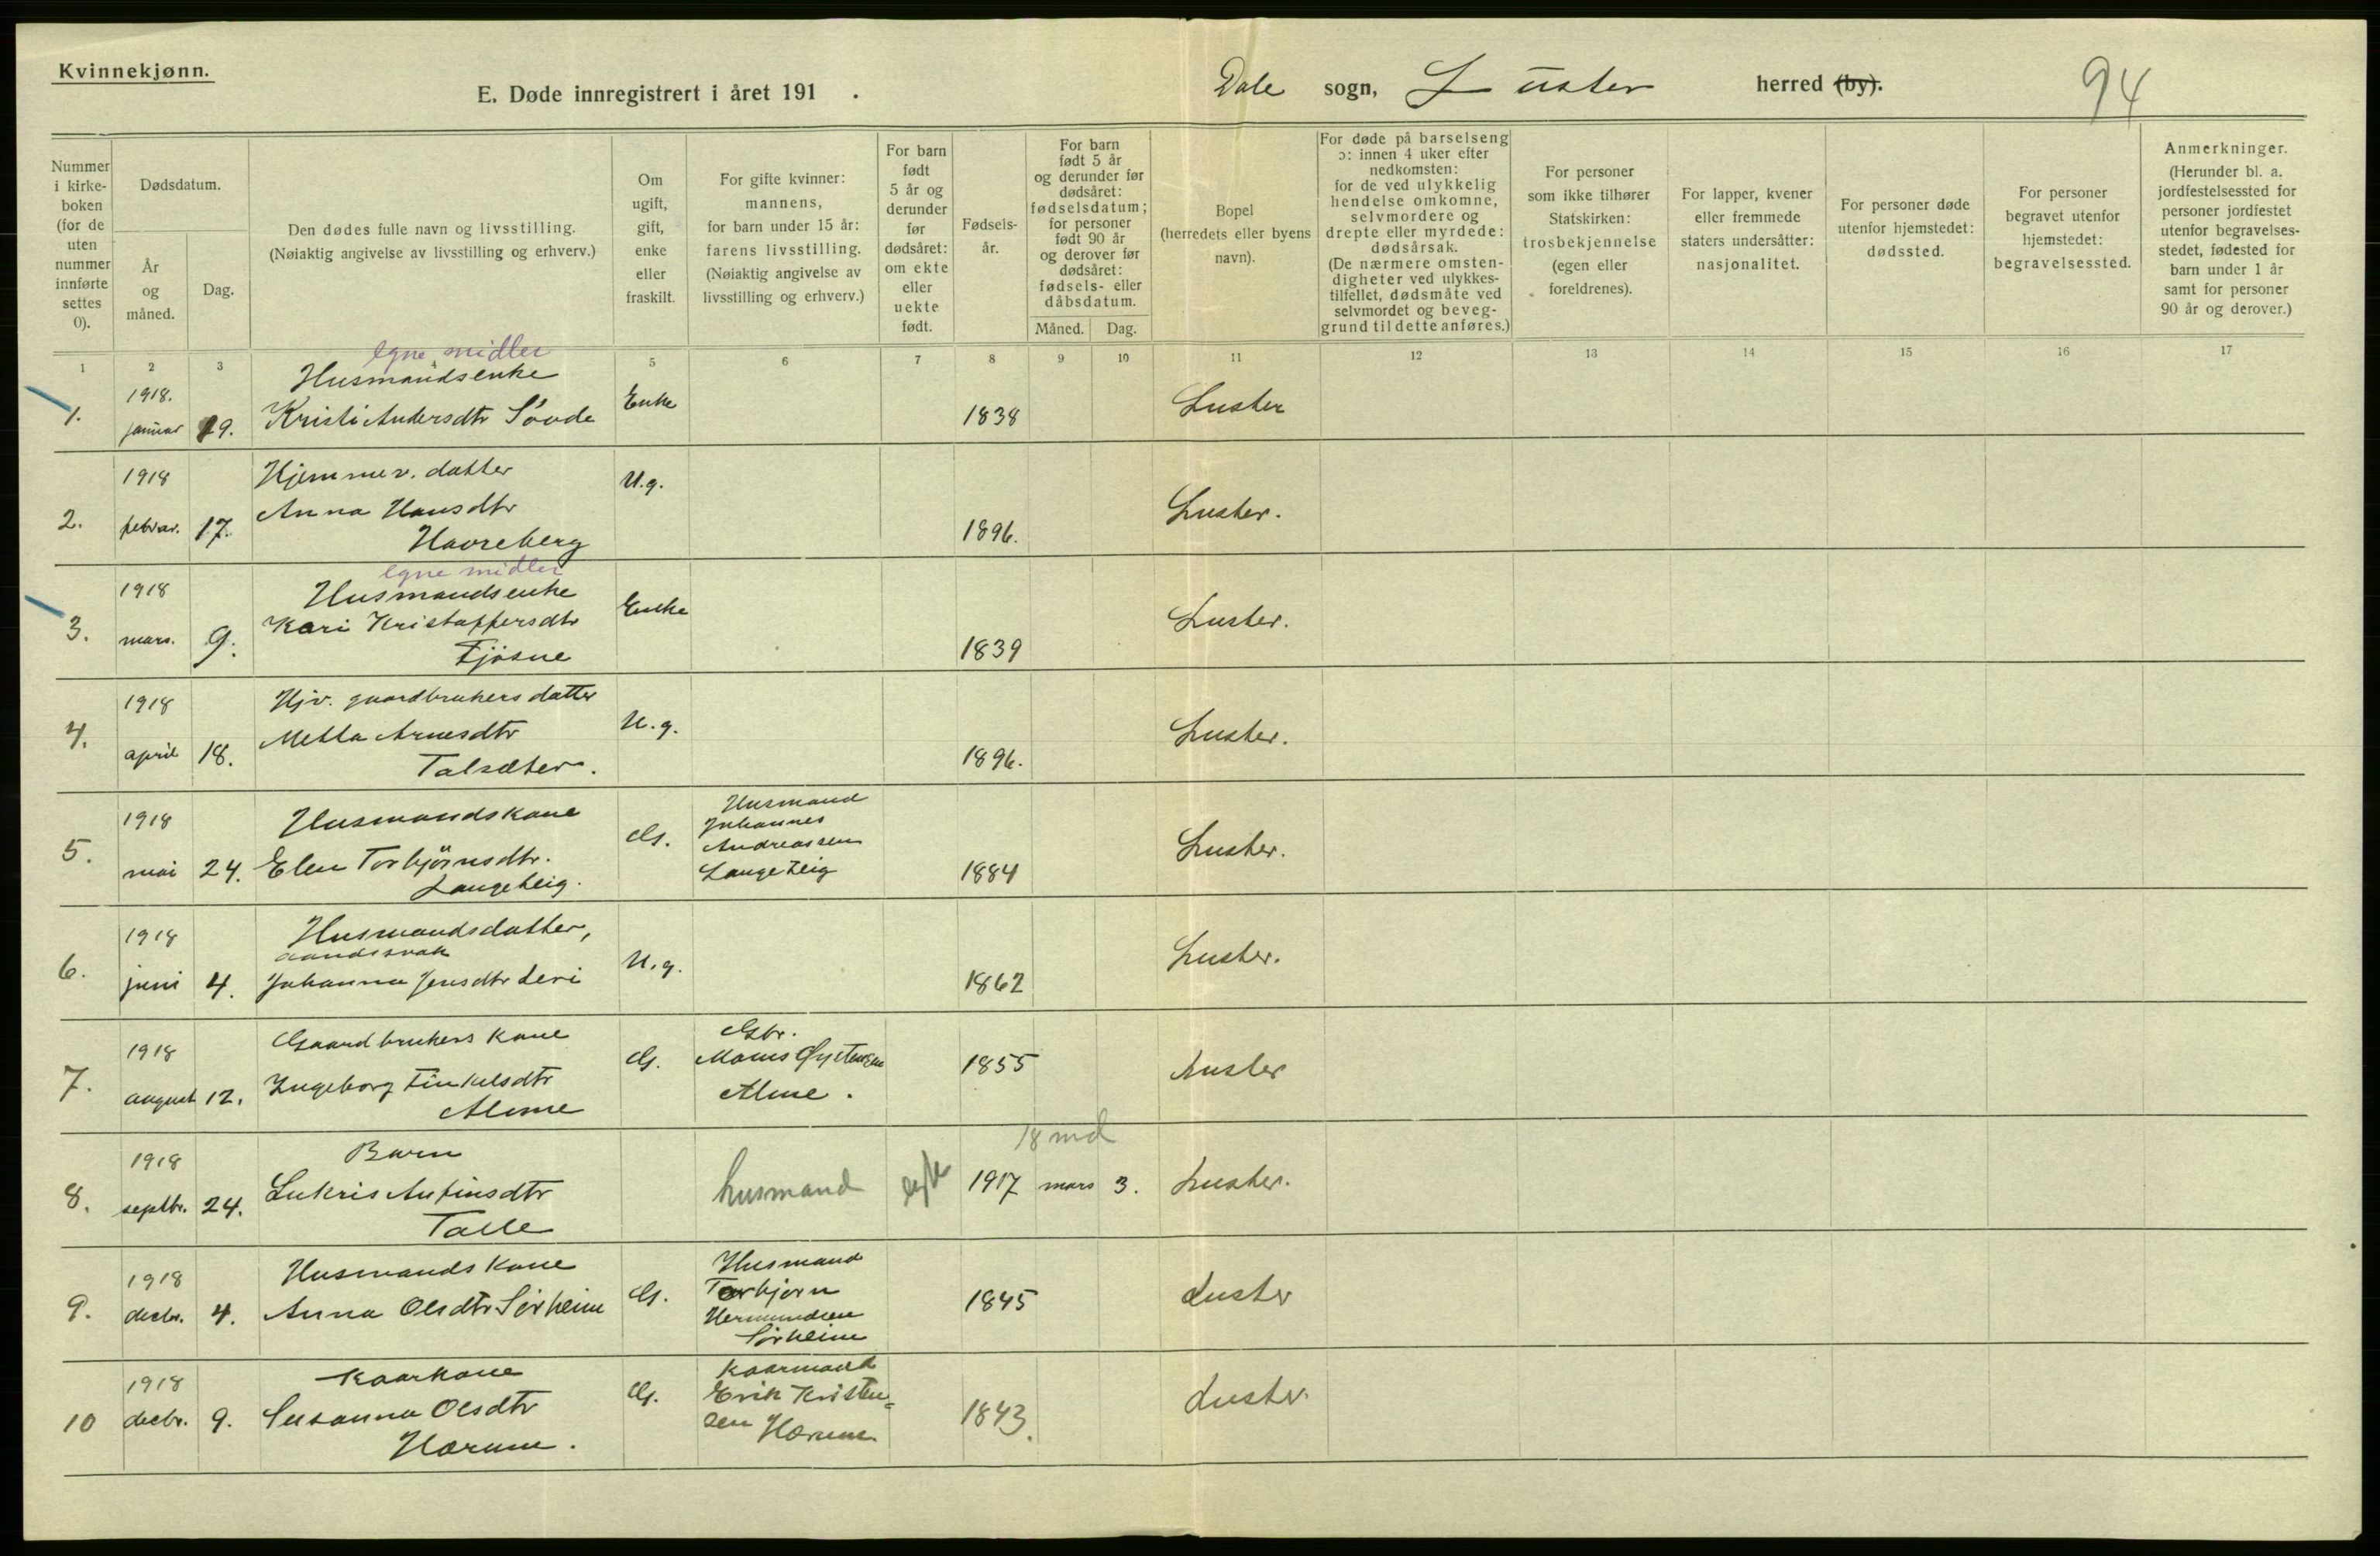 Kvinnekjønn.
E. Døde innregistrert i året 191 .
Dale sogn, Luster herred (by).
94
Nummer i kirke-boken (for de uten nummer innførte settes 0).
Dødsdatum.
År og måned.
Dag.
Den dødes fulle navn og livsstilling.
(Nøiaktig angivelse av livsstilling og erhverv.)
Om ugift, gift, enke eller fraskilt.
For gifte kvinner: mannens, for barn under 15 år: farens livsstilling. (Nøiaktig angivelse av livsstilling og erhverv.)
For barn født 5 år og derunder før dødsåret: om ekte eller uekte født.
Fødsels-år.
For barn født 5 år og derunder før dødsåret: fødselsdatum; for personer født 90 år og derover før dødsåret: fødsels- eller dåbsdatum.
Måned.
Dag.
Bopel (herredets eller byens navn).
For døde på barselseng ɔ: innen 4 uker efter nedkomsten: for de ved ulykkelig hendelse omkomne, selvmordere og drepte eller myrdede: dødsårsak. (De nærmere omsten-digheter ved ulykkes-tilfellet, dødsmåte ved selvmordet og beveg-grund til dette anføres.)
For personer som ikke tilhører Statskirken: trosbekjennelse (egen eller foreldrenes).
For lapper, kvener eller fremmede staters undersåtter: nasjonalitet.
For personer døde utenfor hjemstedet: dødssted.
For personer begravet utenfor hjemstedet: begravelsessted.
Anmerkninger. (Herunder bl. a. jordfestelsessted for personer jordfestet utenfor begravelses-stedet, fødested for barn under 1 år samt for personer 90 år og derover.)
1 2 3 5 6 7 8 9 10 11 12 13 14 15 16 17
egne midler
Husmandsenke
1. 1918. januar 29. Kristi Andersdtr Søvde Enke 1838 Luster
Hjemmev. datter
2. 1918 februar. 17. Anna Hansdtr Havreberg U.g. 1896. Luster.
egne midler
Husmandsenke
3. 1918 mars. 9. Kari Kristoffersdtr Fjøsne Enke 1839 Luster.
Hjv. gaardbrukers datter
4. 1918 april 18. Metta Arnesdtr Talsæter. U.g. 1896. Luster.
Husmandskone
5. 1918 mai 24. Elen Torbjørnsdtr. Langeteig. G. Husmand Johannes Andreassen Langeteig 1884 Luster.
Husmandsdatter,
aandssvak
6. 1918 juni 4. Johanna Jensdtr Leri U.g. 1862 Luster.
Gaardbrukers kone
7. 1918 august 12. Ingeborg Finkelsdtr Alme G. Gbr. Mons Øystensen Alme. 1855 Luster
Barn
8. 1918 septbr. 24. Lukris Anfinsdtr Talle husmand egte 1917 18 md mars 3. Luster.
Husmands kone
9. 1918 decbr. 4. Anna Olsdtr Sørheim G. Husmand Torbjørn Hermundsen Sørheim 1845 Luster
Kaarkone
10 1918 decbr. 9. Susanna Olsdtr Hærum. G. Kaarmand Erik Kristen=sen Hærum. 1843. Luster.